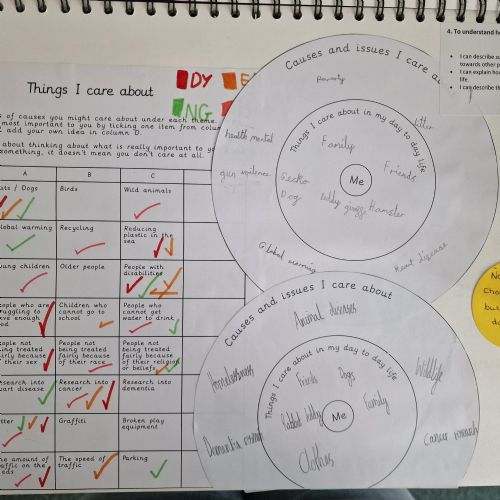 4. To understand
I can describe
towards other
I can explain
life.
I can describe
DY
NG
Things I care about
of causes you might care about under each theme.
most important to you by ticking one item from
add your own idea in column D.
about thinking about what is really important to
something, it doesn't mean you don't care at all.
A
B
C
/ Dogs
Birds
Wild animals
Global warming
Recycling
Reducing
plastic in the
sea
children
Older people
People with
disabilities
People who are
struggling to
have enough
food
Children who
cannot go to
school
People who
cannot get
water to drink
People not
being treated
fairly because
of their sex
People not
being treated
fairly because
of their race
People not
being treated
fairly because
of their religion
or beliefs
Research into
heart disease
Research into
cancer
Research into
dementia
Litter
Graffiti
Broken play
equipment
The amount of
traffic on the
roads
The speed of
traffic
Parking
Causes and issues I care
poverty
litter
health mental
gun vigilence
Global warming
Heart disease
Things I care about in my day to day life
Family
Friends
Gecko
Dog
Hamster
Me
Causes and issues I care about
Animal diseases
Homelessness
Wildlife
Dementia
Cancer research
Things I care about in my day to day life
Friends
Dogs
Family
Clothes
Me